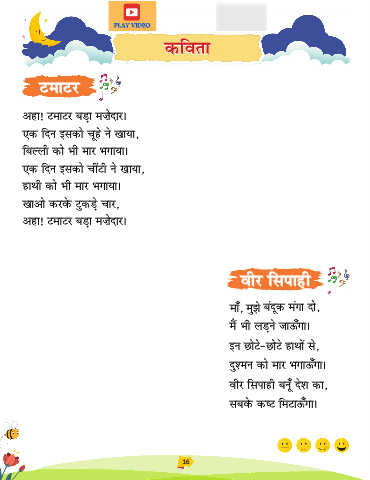 PLAY VIDEO
कविता
टमाटर
अहा! टमाटर बड़ा मज़ेदार।
एक दिन इसको चूहे ने खाया,
बिल्ली को भी मार भगाया।
एक दिन इसको चींटी ने खाया,
हाथी को भी मार भगाया।
खाओ करके टुकड़े चार,
अहा! टमाटर बड़ा मज़ेदार।
वीर सिपाही
माँ, मुझे बंदूक मंगा दो,
मैं भी लड़ने जाऊँगा।
इन छोटे-छोटे हाथों से,
दुश्मन को मार भगाऊँगा।
वीर सिपाही बनूँ देश का,
सबके कष्ट मिटाऊँगा।
16